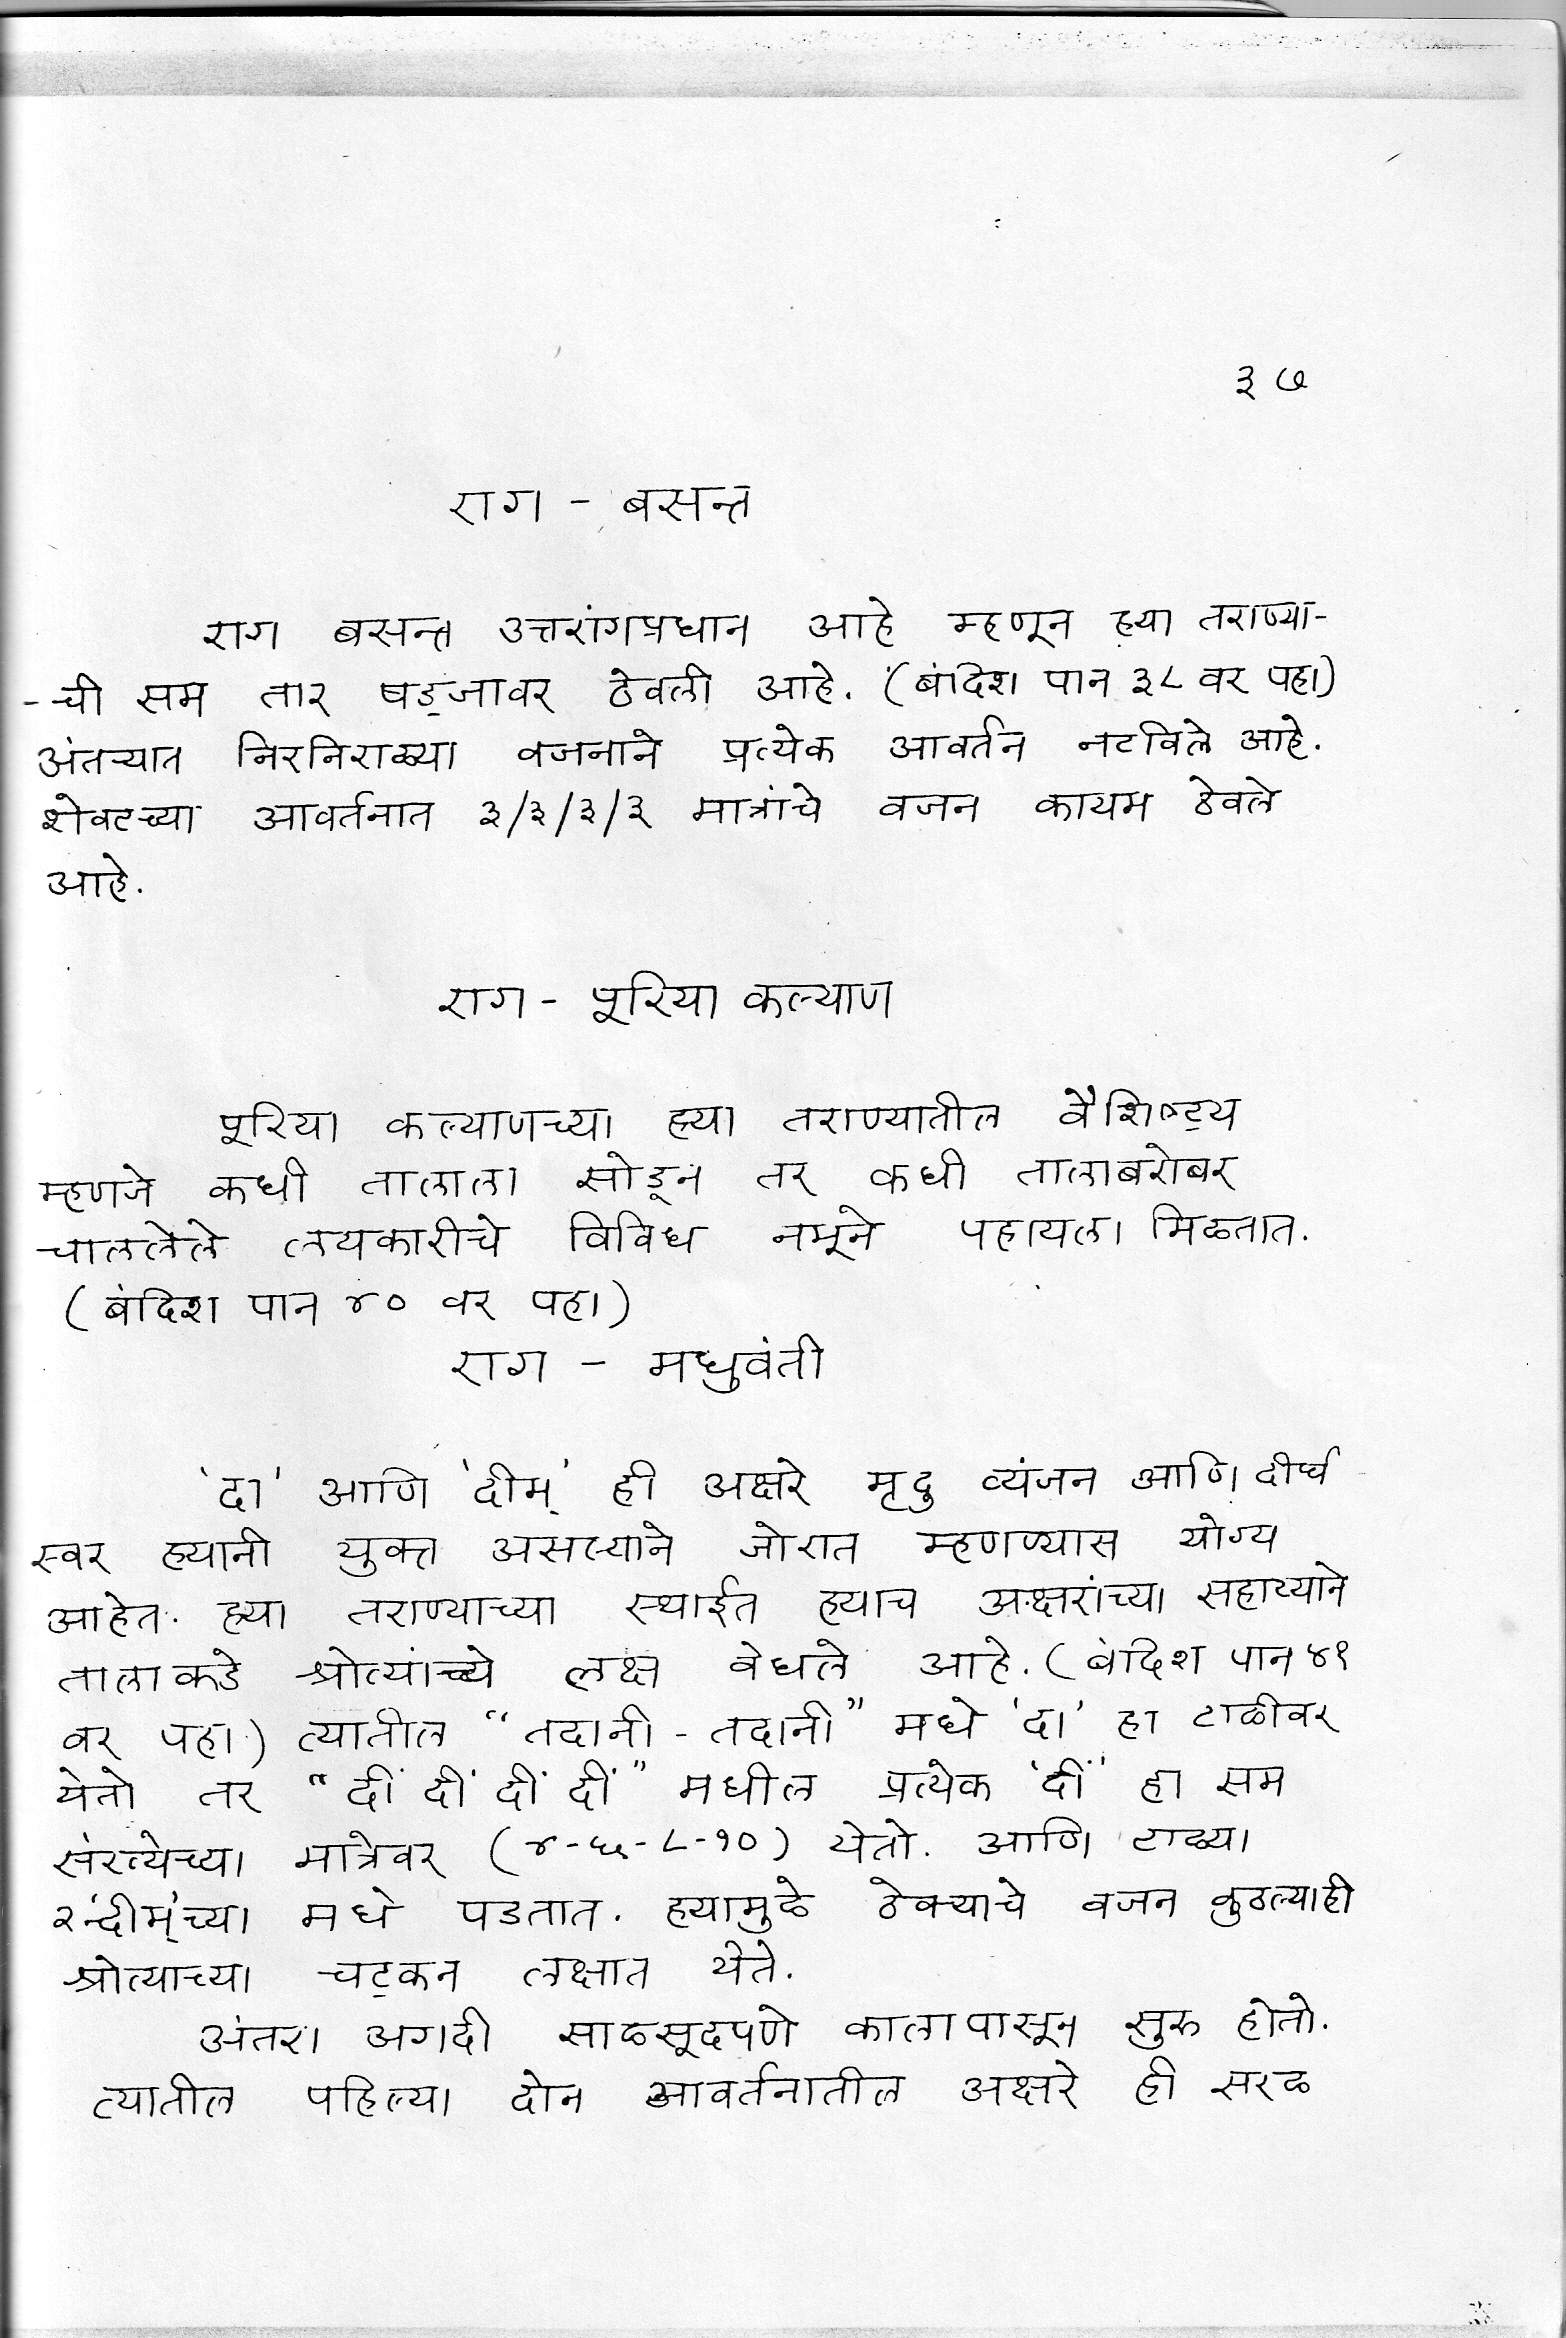 ३७
राग - बसन्त
राग बसन्त उत्तरांगप्रधान आहे म्हणून ह्या तराण्या-
-ची सम तार षड्जावर ठेवली आहे. (बंदिश पान ३८ वर पहा)
अंतऱ्यात निरनिराळ्या वजनाने प्रत्येक आवर्तन नटविले आहे.
शेवटच्या आवर्तनात ३/३/३/३ मात्रांचे वजन कायम ठेवले
आहे.
राग - पूरिया कल्याण
पूरिया कल्याणच्या ह्या तराण्यातील वैशिष्ट्य
म्हणजे कधी तालाला सोडून तर कधी तालाबरोबर
चाललेले लयकारीचे विविध नमूने पहायला मिळतात.
(बंदिश पान ४० वर पहा)
राग - मधुवंती
'दा' आणि 'दीम्' ही अक्षरे मृदु व्यंजन आणि दीर्घ
स्वर ह्यानी युक्त असल्याने जोरात म्हणण्यास योग्य
आहेत. ह्या तराण्याच्या स्थाईत ह्याच अक्षरांच्या सहाय्याने
तालाकडे श्रोत्यांच्ये लक्ष वेधले आहे. (बंदिश पान ४१
वर पहा) त्यातील "तदानी - तदानी" मधे 'दा' हा टाळीवर
येतो तर "दीं दीं दीं दीं" मधील प्रत्येक 'दीं' हा सम
संख्येच्या मात्रेवर (४-६-८-१०) येतो. आणि टाळ्या
२'दीम्'च्या मधे पडतात. ह्यामुळे ठेक्याचे वजन कुठल्याही
श्रोत्याच्या चट्कन लक्षात येते.
अंतरा अगदी साळसूदपणे कालापासून सुरु होतो.
त्यातील पहिल्या दोन आवर्तनातील अक्षरे ही सरळ